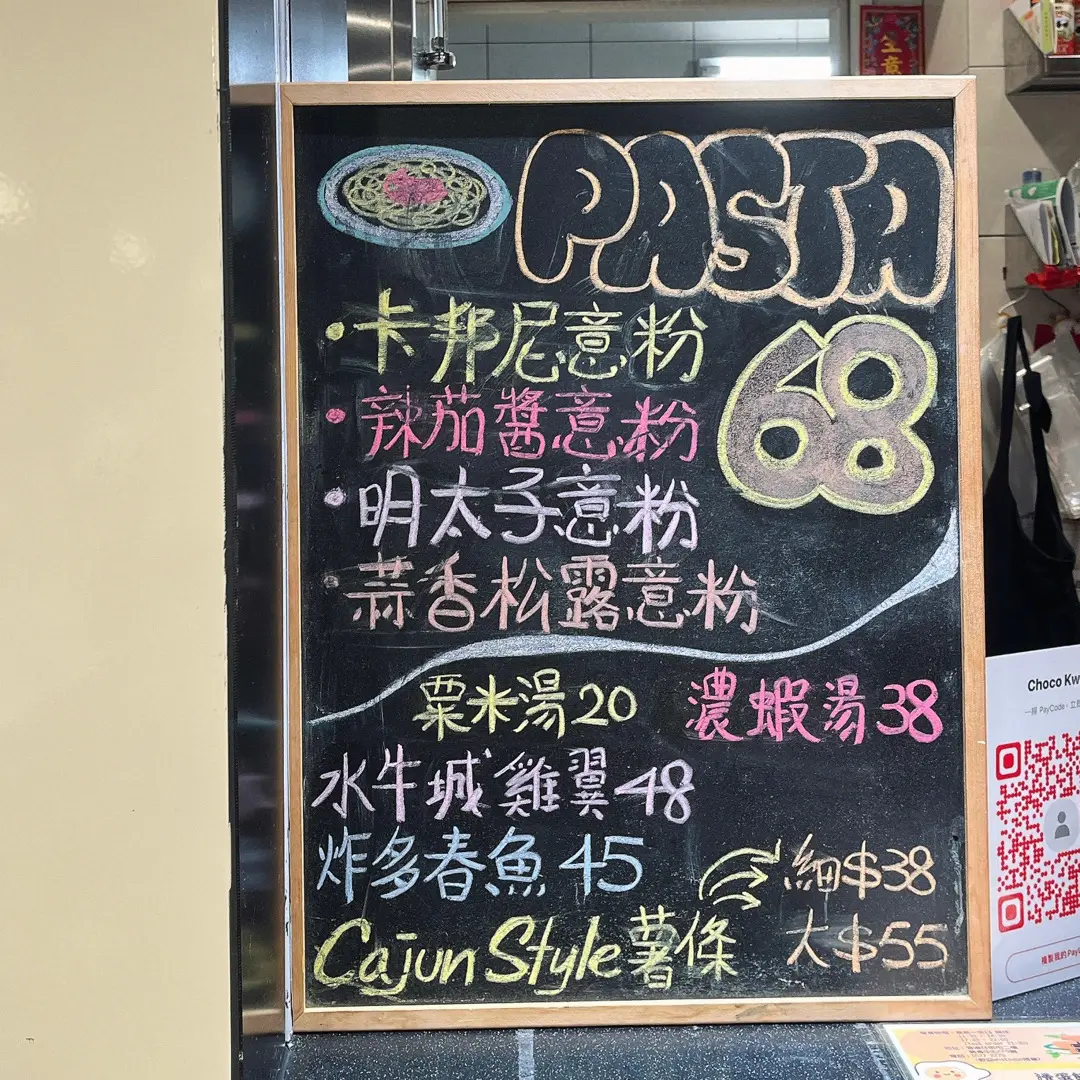 PASTA
•卡邦尼意粉
•辣茄醬意粉
•明太子意粉
•蒜香松露意粉
68
粟米湯20 濃蝦湯38
水牛城雞翼48
炸多春魚 45
Cajun Style薯條
細$38
大$55
Choco Kw